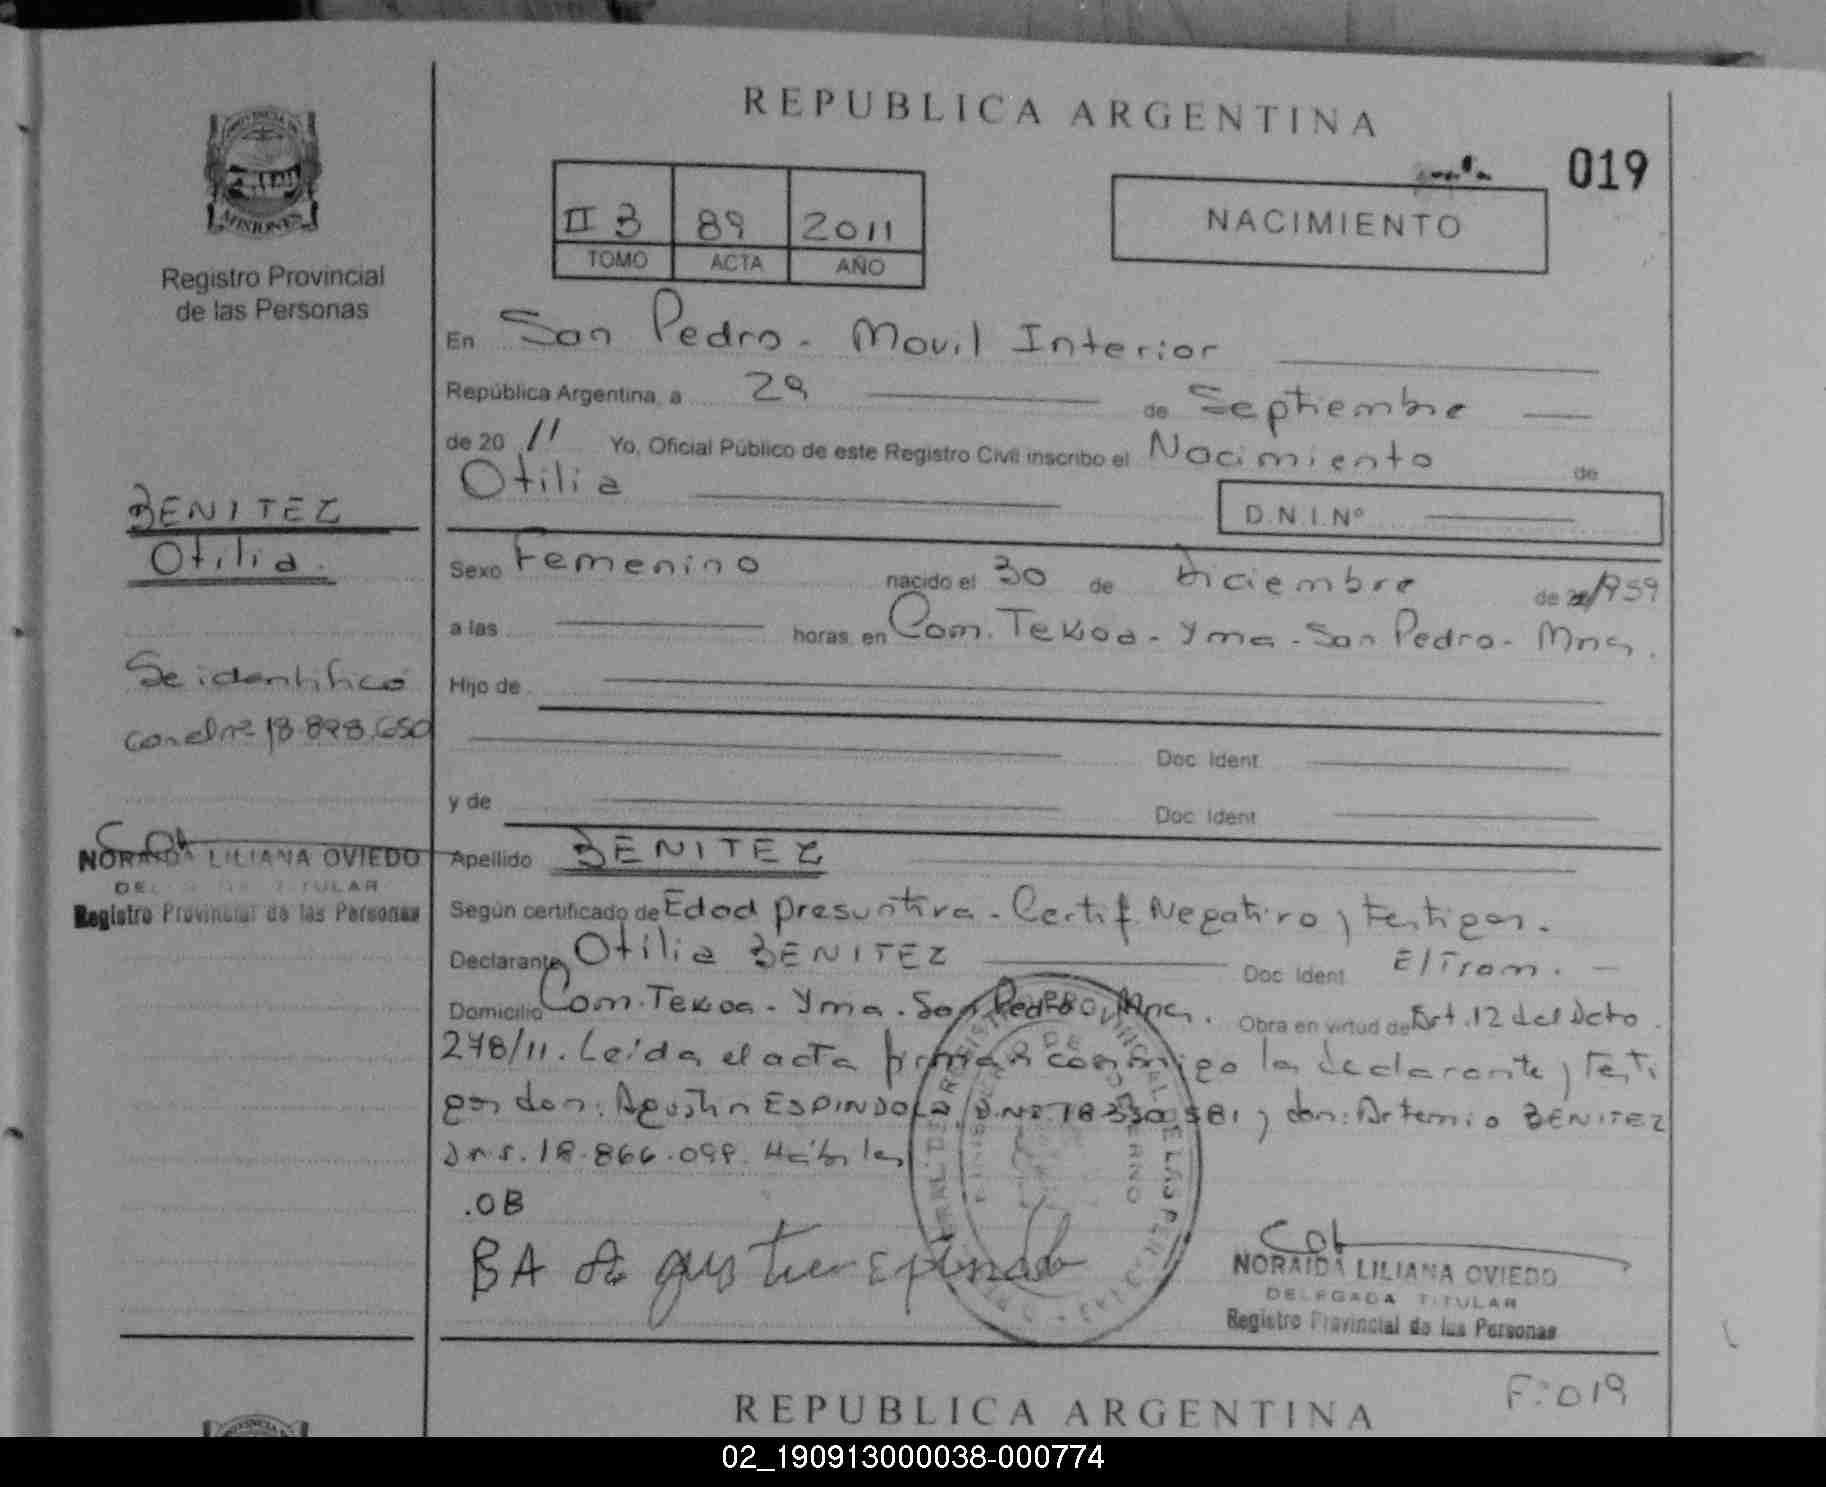 REPUBLICA ARGENTINA
019
PROVINCIA DE
MISIONES
Registro Provincial
de las Personas
II 3 89 2011
TOMO ACTA AÑO
NACIMIENTO
En San Pedro - Movil Interior
República Argentina, a 29 de Septiembre
de 20 11 Yo, Oficial Público de este Registro Civil inscribo el Nacimiento de
Otilia
D.N.I.Nº
BENITEZ
Otilia.
Sexo Femenino nacido el 30 de Diciembre de 1959
a las horas, en Com. Tekoa - Yma - San Pedro - Mnes.
Se identificó
con el nº 18.898.650
Hijo de
Doc. Ident.
y de Doc. Ident.
NORAIDA LILIANA OVIEDO
DELEGADA TITULAR
Registro Provincial de las Personas
Apellido BENITEZ
Según certificado de Edad presuntiva - Certif. Negativo y testigos.
Declarante Otilia BENITEZ Doc. Ident. E/Tram.
Domicilio Com. Tekoa - Yma - San Pedro Mnes. Obra en virtud de Art. 12 del Dcto
278/11. Leída el acta firman conmigo la declarante y testi
gos don: Agustin ESPINDOLA D.N.I. 18330581 y don: Artemio BENITEZ
18.866.099. Hábiles
.OB
BA Agustin Espindola
NORAIDA LILIANA OVIEDO
DELEGADA TITULAR
Registro Provincial de las Personas
F:019
REPUBLICA ARGENTINA
02_190913000038-000774